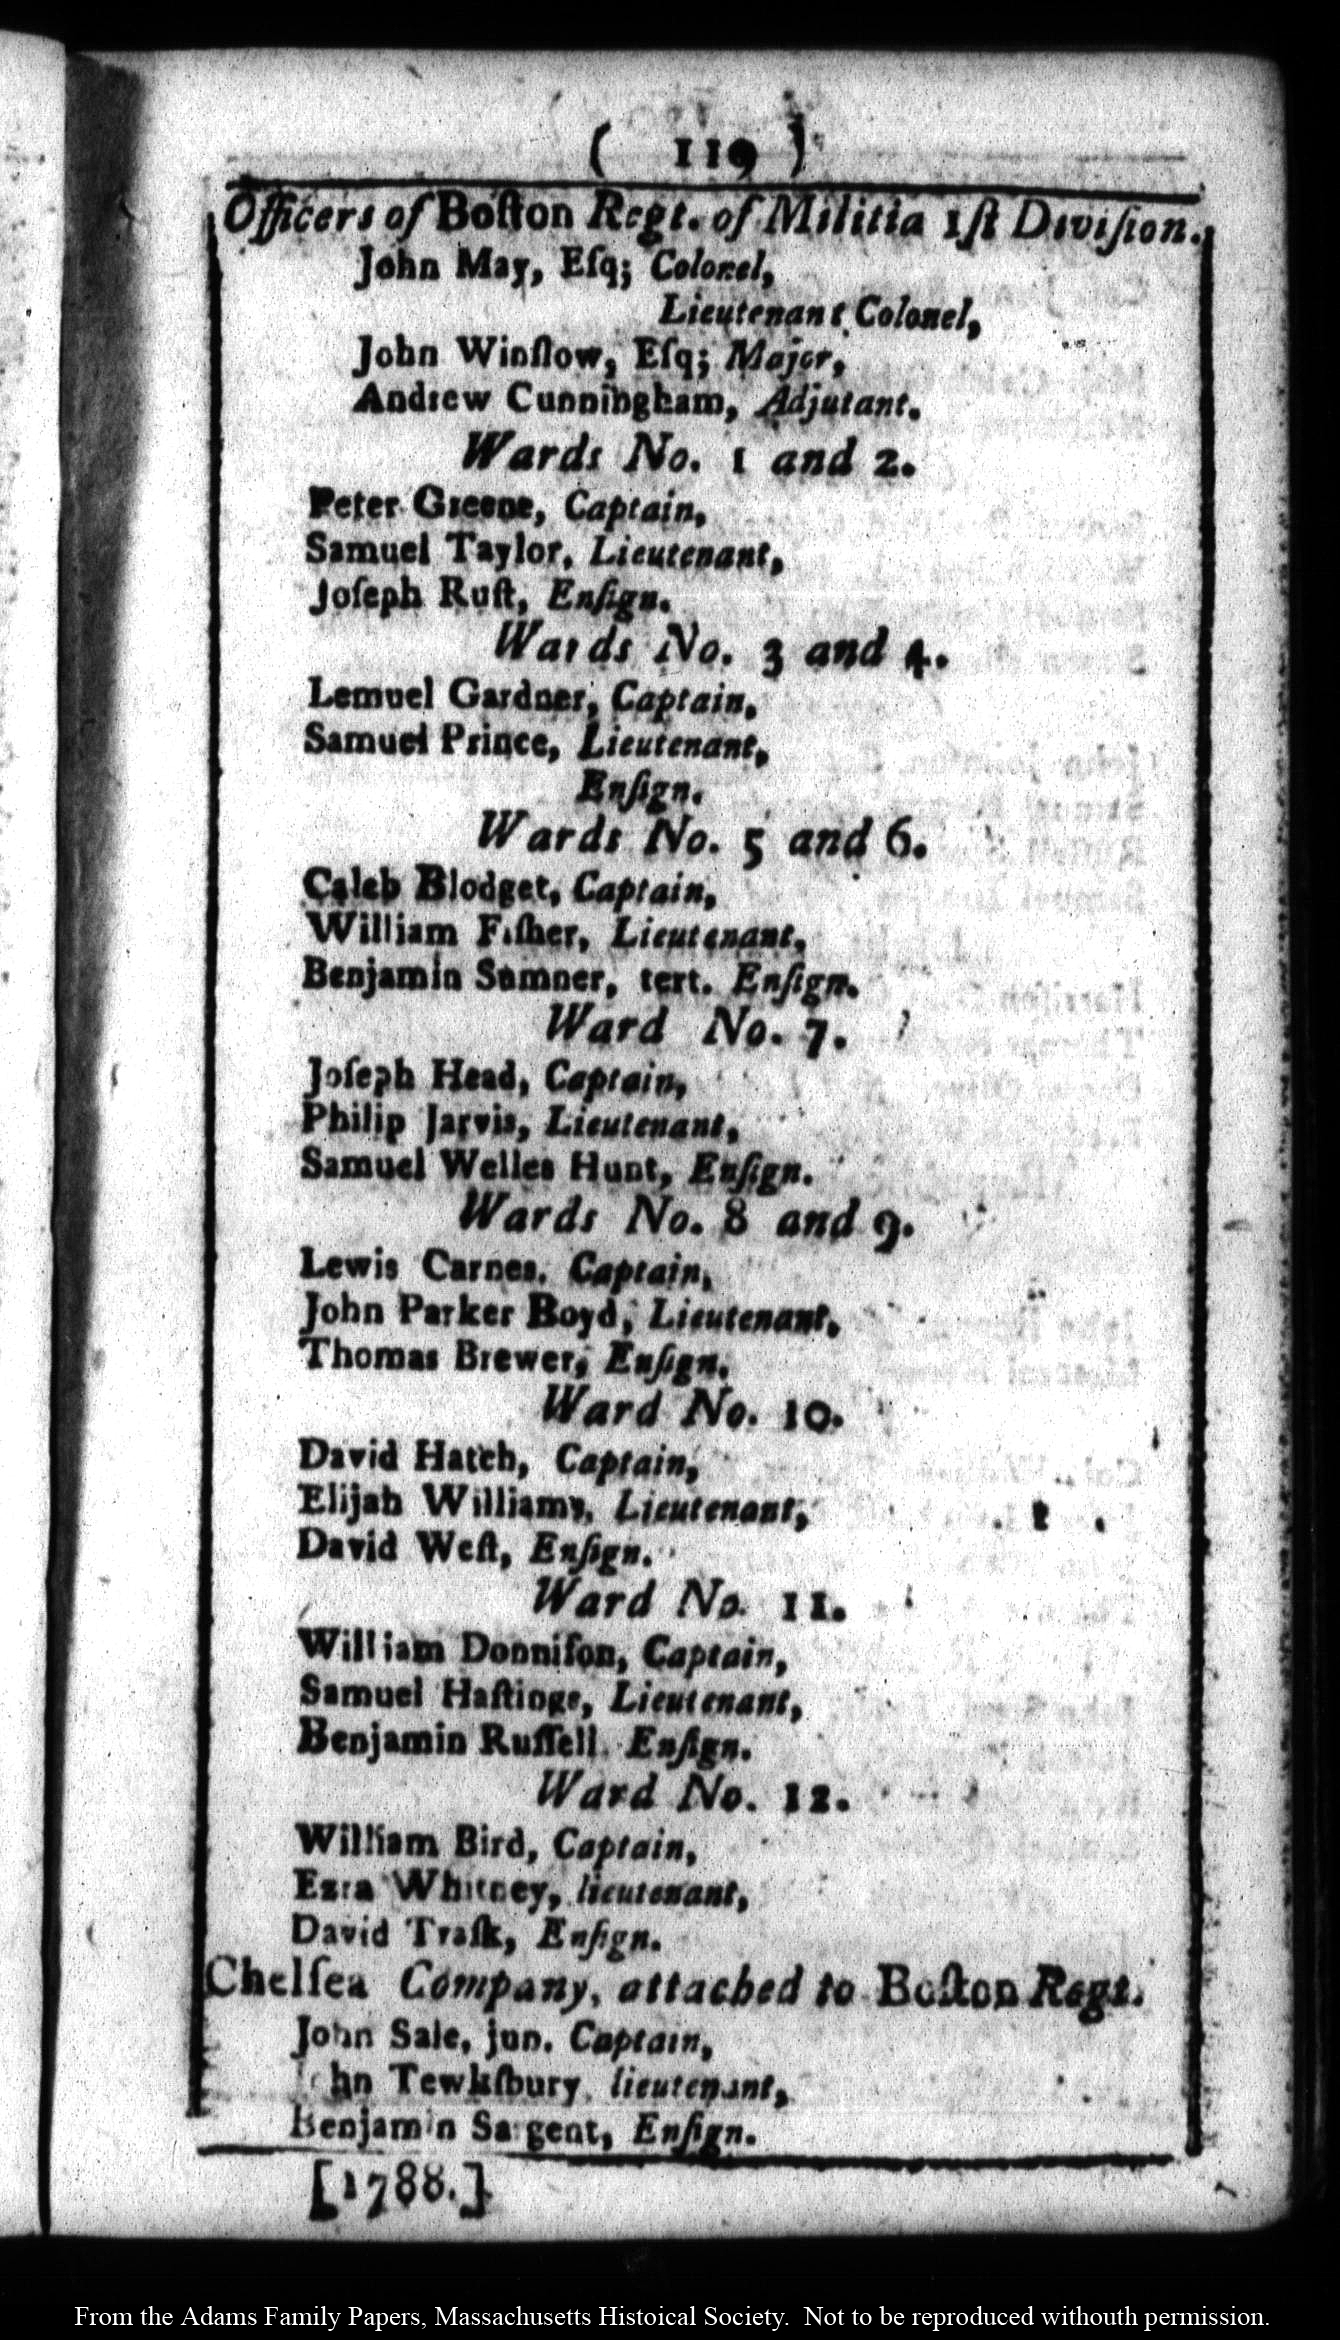 ( 119 )
Officers of Boſton Regt. of Militia 1ſt Diviſion.
John May, Eſq; Colonel,
Lieutenant Colonel,
John Winſlow, Eſq; Major,
Andrew Cunningham, Adjutant.
Wards No. 1 and 2.
Peter Greene, Captain,
Samuel Taylor, Lieutenant,
Joſeph Ruſt, Enſign.
Wards No. 3 and 4.
Lemuel Gardner, Captain,
Samuel Prince, Lieutenant,
Enſign.
Wards No. 5 and 6.
Caleb Blodget, Captain,
William Fiſher, Lieutenant,
Benjamin Sumner, tert. Enſign.
Ward No. 7.
Joſeph Head, Captain,
Philip Jarvis, Lieutenant,
Samuel Welles Hunt, Enſign.
Wards No. 8 and 9.
Lewis Carnes, Captain,
John Parker Boyd, Lieutenant,
Thomas Brewer, Enſign.
Ward No. 10.
David Hatch, Captain,
Elijah Williams, Lieutenant,
David Weſt, Enſign.
Ward No. 11.
William Donniſon, Captain,
Samuel Haſtings, Lieutenant,
Benjamin Ruſſell, Enſign.
Ward No. 12.
William Bird, Captain,
Ezra Whitney, lieutenant,
David Traſk, Enſign.
Chelſea Company, attached to Boſton Regt.
John Sale, jun. Captain,
John Tewkſbury, lieutenant,
Benjamin Sargent, Enſign.
[1788.]
From the Adams Family Papers, Massachusetts Histoical Society. Not to be reproduced withouth permission.